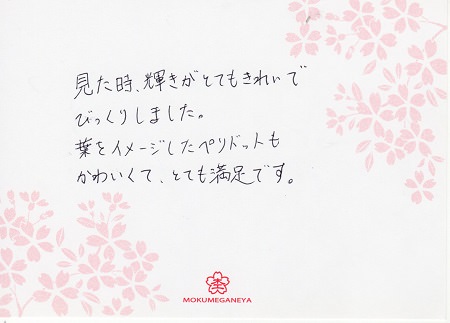 見た時、輝きがとてもきれいで
びっくりしました。
葉をイメージしたペリドットも
かわいくて、とても満足です。
MOKUMEGANEYA